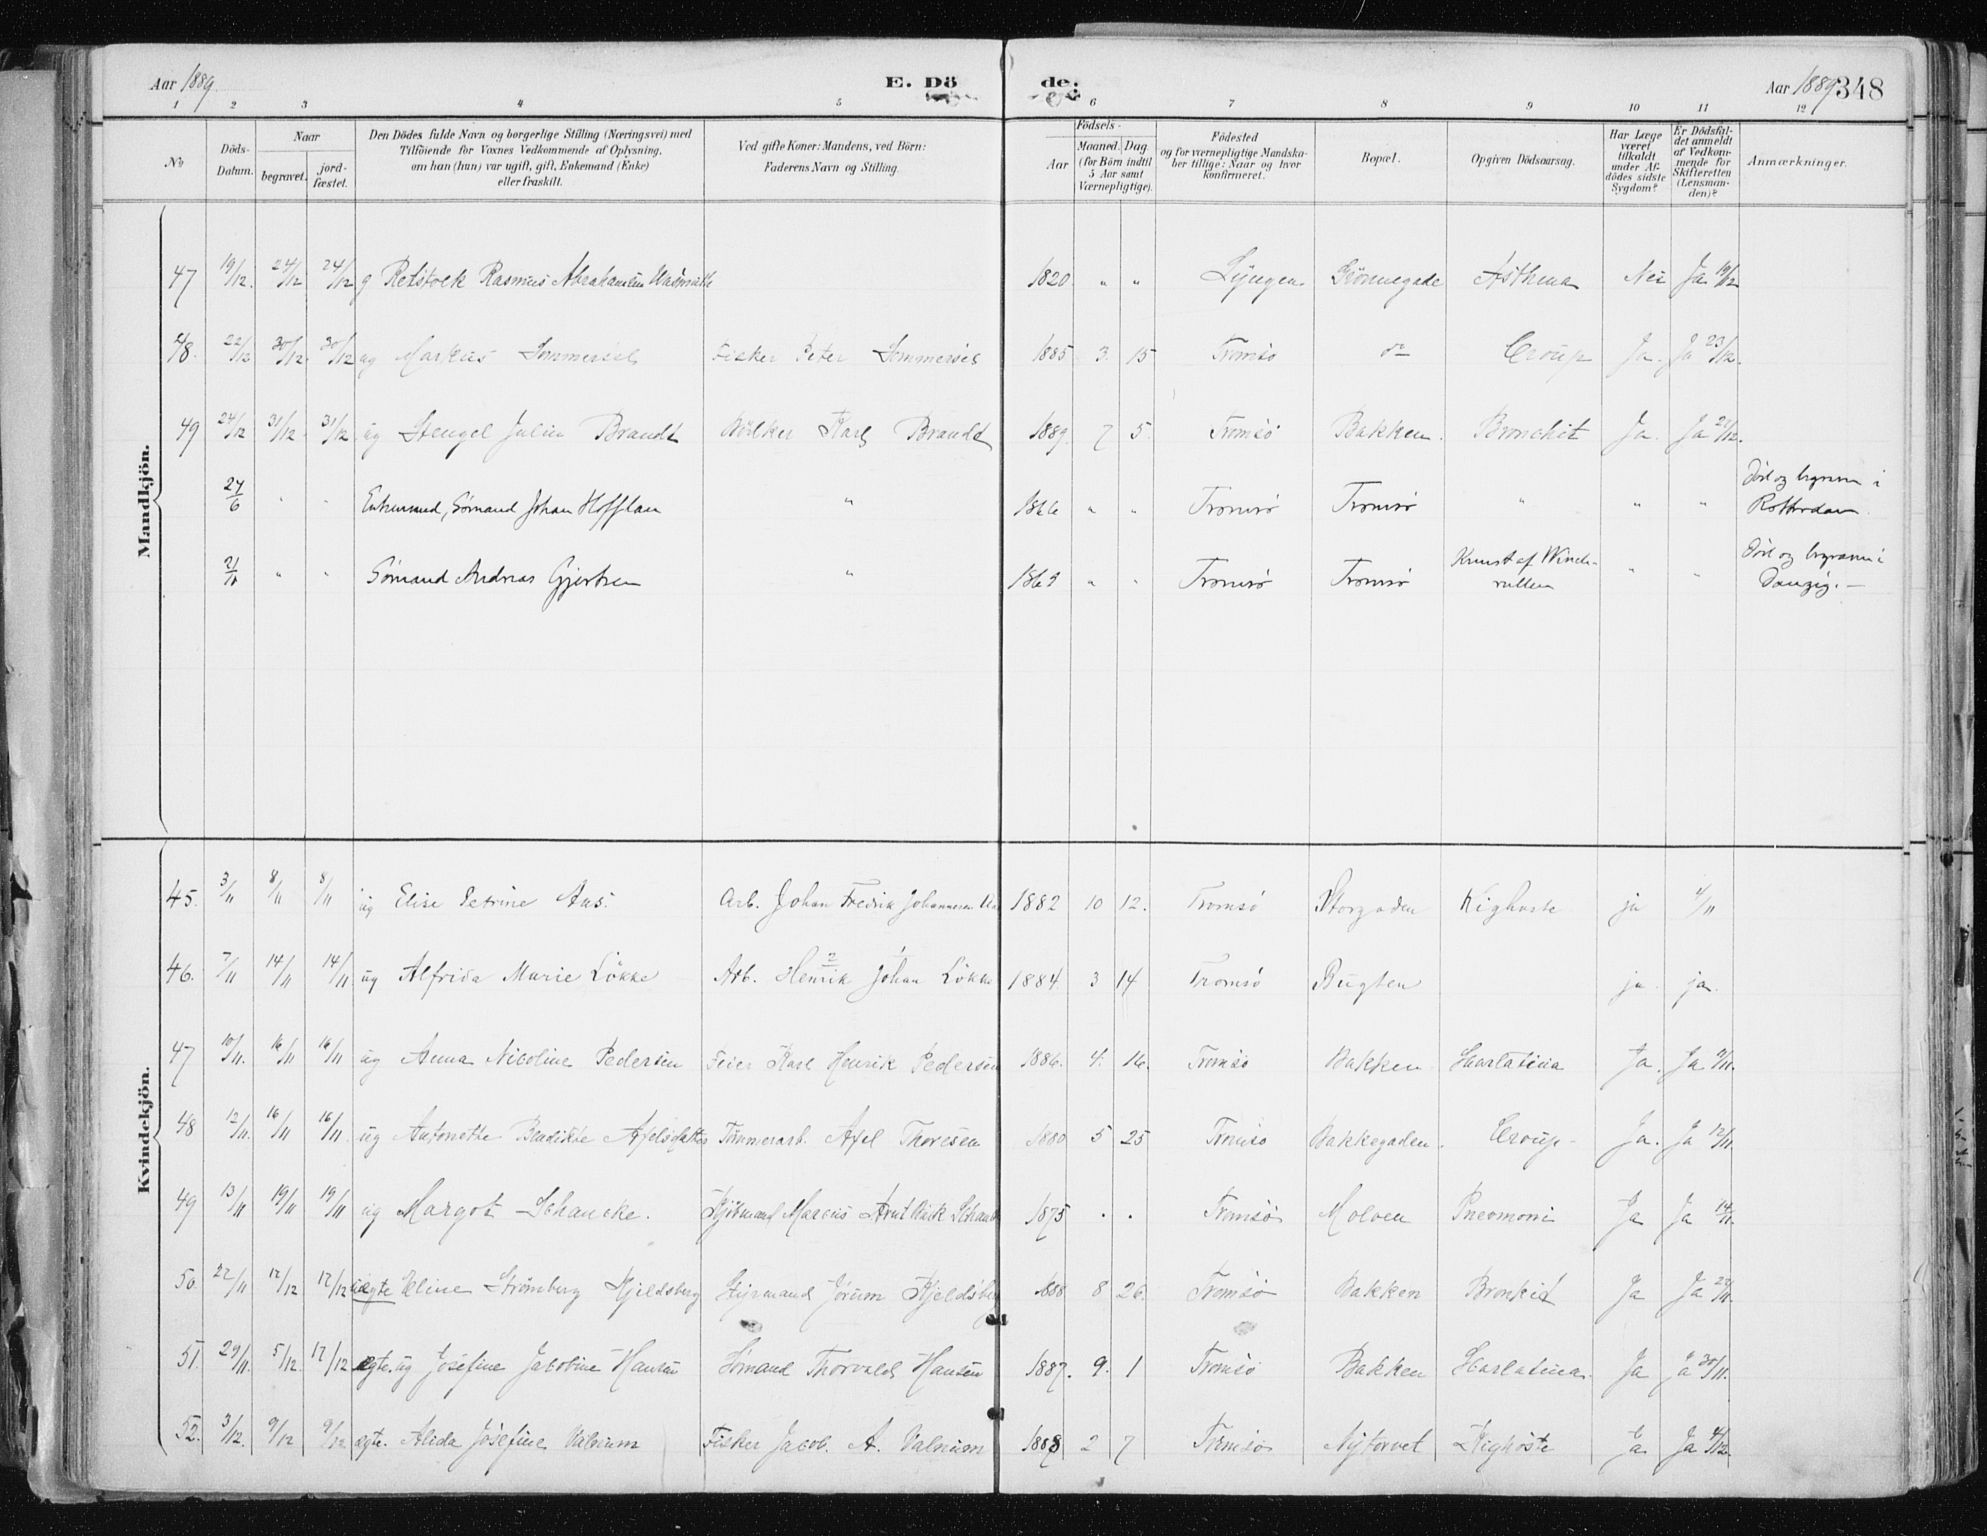 Aar 1889. E. Dö de. Aar 1889 348
1 2 3 4 5 6 7 8 9 10 11 12
No
Döds-Datum.
Naar
begravet.
jord-fæstet.
Den Dödes fulde Navn og borgerlige Stilling (Næringsvei) med
Tilföiende for Voxnes Vedkommende af Oplysning,
om han (hun) var ugift, gift, Enkemand (Enke)
eller fraskilt.
Ved gifte Koner: Mandens, ved Börn:
Faderens Navn og Stilling.
Födsels-
Aar
Maaned. Dag
(for Börn indtil
5 Aar samt
Værnepligtige).
Födested
og for værnepligtige Mandska-
ber tillige: Naar og hvor
konfirmeret.
Bopæl.
Opgiven Dödsaarsag.
Har Læge
været
tilkaldt
under Af-
dödes sidste
Sygdom?
Er Dödsfal-
det anmeldt
af Vedkom-
mende for
Skifteretten
(Lensman-
den)?
Anmærkninger.
Mandkjön.
47 19/12. 24/12 24/12 g Rasmus 1820 " " Lyngen Grönnegade Asthma Nei Ja 19/12
48. 22/12 30/12. 30/12 ug Markus Sommersel Fisker Peter Sommersel 1885 3. 15 Tromsö do Croup Ja. Ja 23/12.
49 24/12 31/12. 31/12. ug Stengel Julin Brandt Karl Brandt 1889. 7 5. Tromsö Bakken. Bronchit Ja. Ja 12.
27/6 " " Enkemand, Sömand Johan Hofflan " 1866 " " Tromsö Tromsö " " " Död og begraven i
Rotterdam
2/11 " " Sömand Andreas Gjertsen " 1863 " " Tromsö Tromsö Knust af Winch-
rullen " " Död og begraven i
Danzig. —
Kvindekjön.
45. 3/11 8/11 8/11 ug Elise Petrine Aas. Arb. Johan Fredrik Johannesen 1882 10 12. Tromsö Storgaden Kighoste ja 4/11
46. 7/11 14/11 14/11 ug Alfrida Marie Lökke Arb. Henrik Johan Lökke 1884. 3 14 Tromsö Bugten ja. ja.
47 10/11. 16/11 16/11 ug Anna Nicoline Pedersen Feier Karl Henrik Pedersen 1886. 4. 16. Tromsö Bakken Scarlatina Ja. Ja 11.
48 12/11. 16/11 16/11. ug Antonette Bendikte Axelsdatter Tömmerarb. Axel Thoresen 1880 5 25 Tromsö Bakkegaden. Croup Ja. Ja 12/11.
49 13/11 19/11 19/11 ug Margot Schancke. Marcus 1875 . . Tromsö Molven Pneomoni Ja Ja 14/11.
50. 22/11 12/12 12/12 uægte Eline Strömberg Kjeldsberg Styrmand Jörum Kjeldsberg 1888 8 26. Tromsö Bakken Bronkit Ja Ja 11.
51. 29/11. 5/12. 12/12 ægte. ug Josefine Jacobine Hansen Sömand Thorvald Hansen 1887. 9. 1 Tromsö Bakken Scarlatina. Ja ja 30/11.
52. 3/12. 9/12 9/12 ægte. Alida Josefine Valnum Fisker Jacob. A. Valnum 1888 2 7 Tromsö Nytorvet Kighoste Ja Ja 4/12.